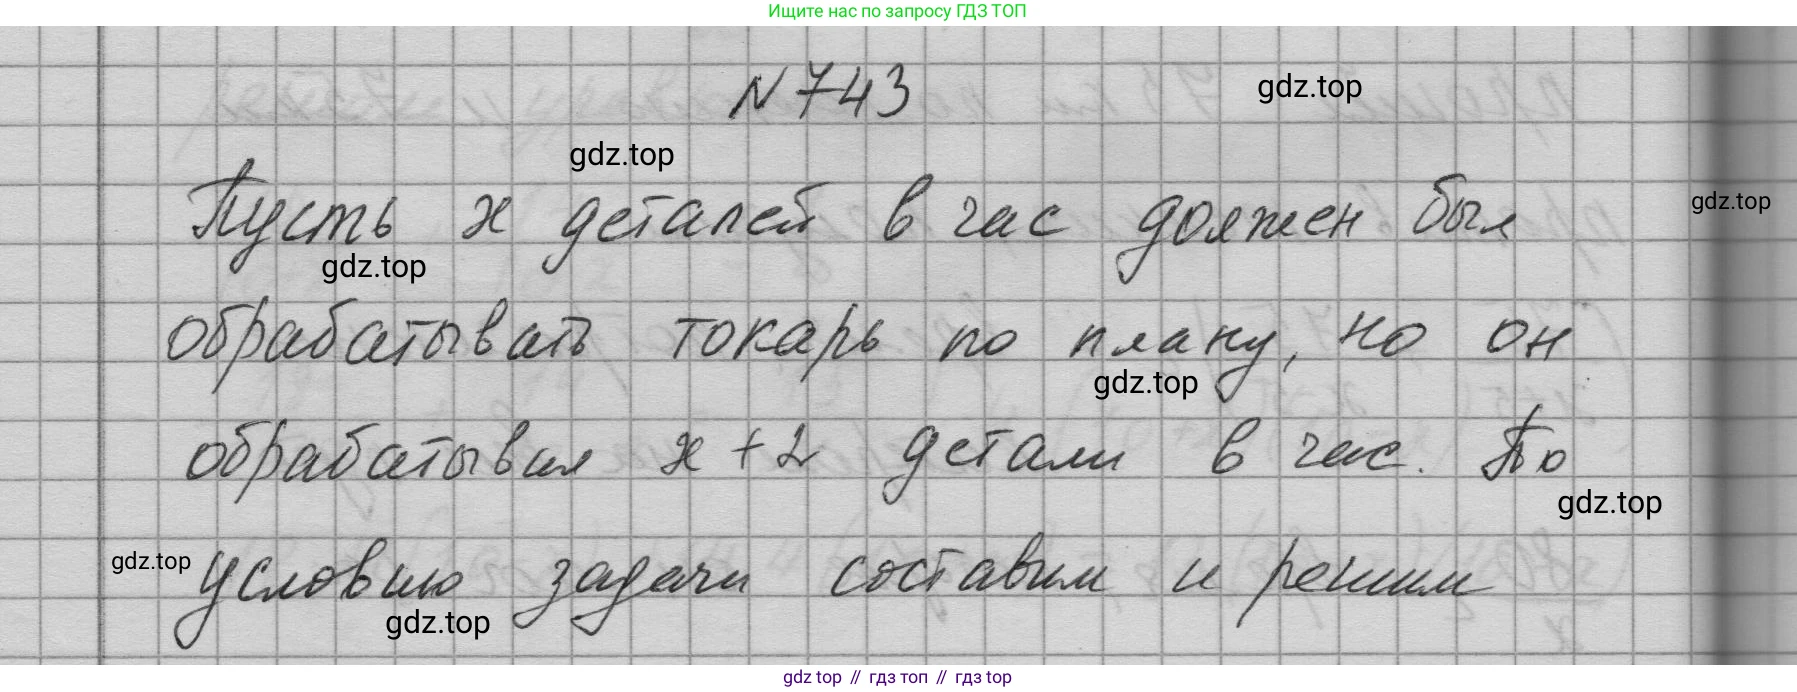 Ищите нас по запросу ГДЗ ТОП
N 743
gdz.top
gdz.top
Пусть x деталей в час должен был
gdz.top
gdz.top
обрабатывать токарь по плану, но он
gdz.top
обрабатывал x + 2 детали в час. По
gdz.top
gdz.top
условию задачи составим и решим
gdz.top
gdz top // гдз топ // gdz top